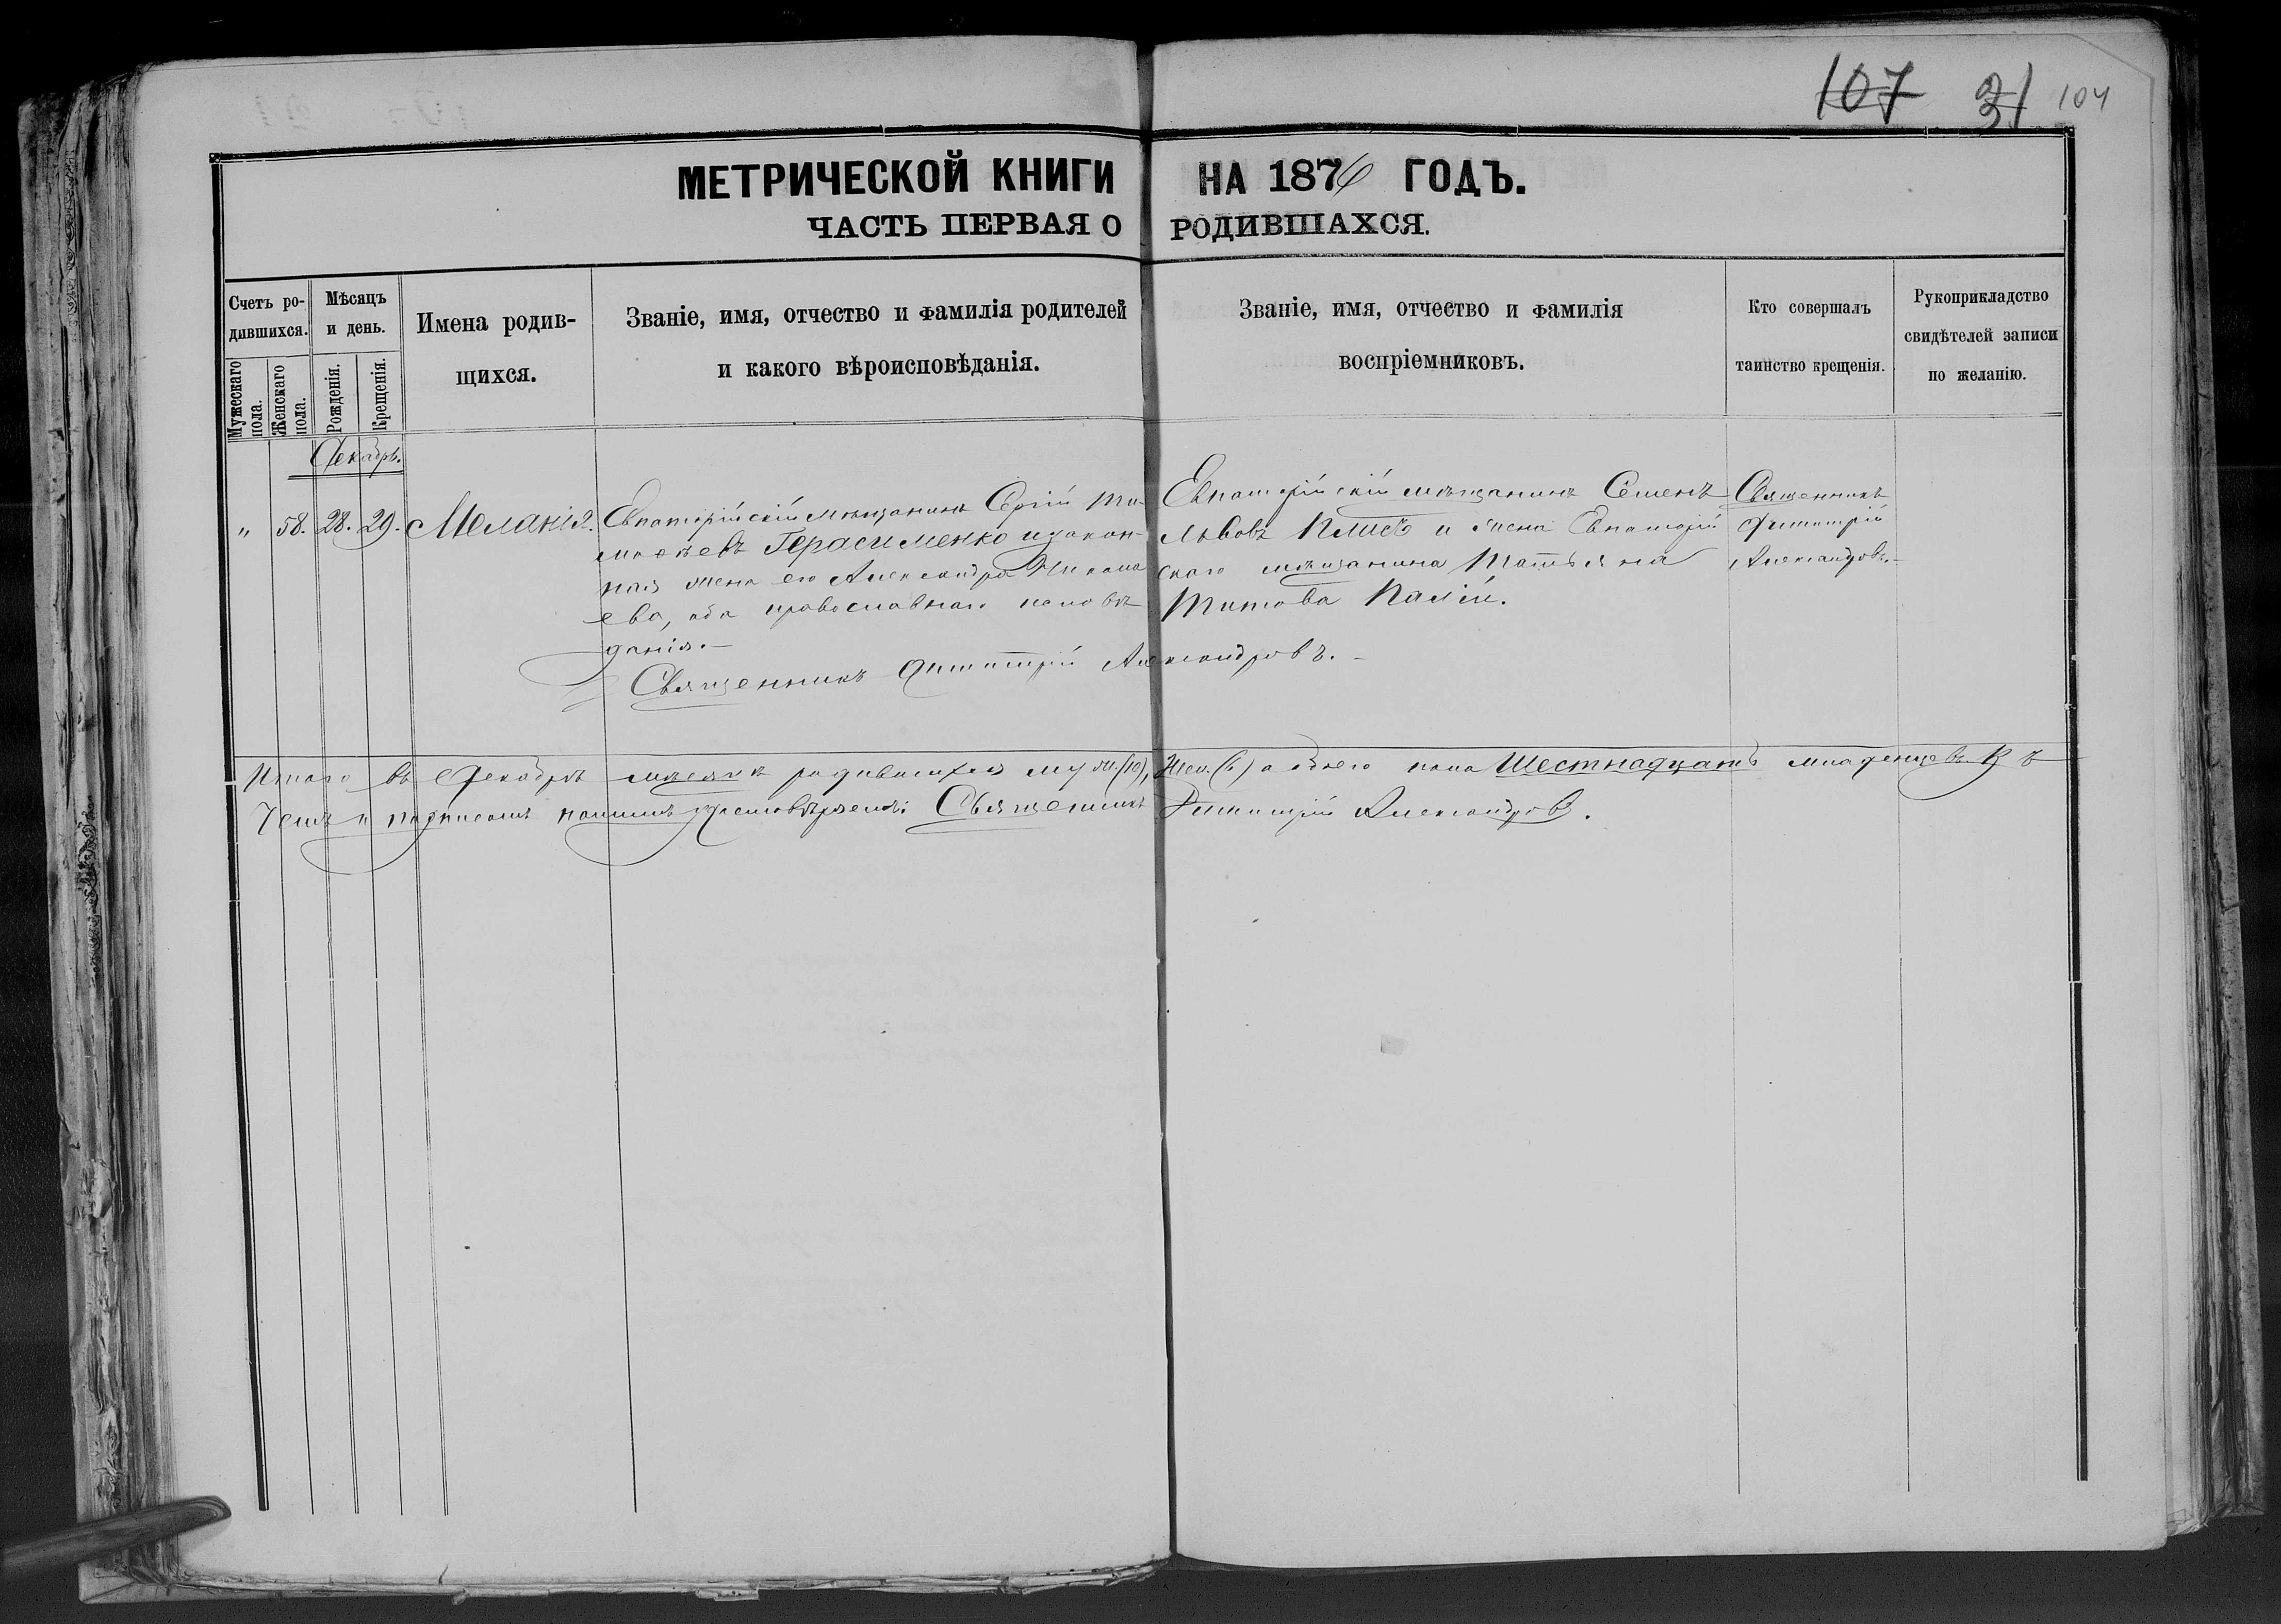 107 31 104
МЕТРИЧЕСКОЙ КНИГИ НА 1876 ГОДЪ.
ЧАСТЬ ПЕРВАЯ О РОДИВШАХСЯ.
Счетъ ро-
дившихся.
Мужескаго
пола.
Женскаго
пола.
Мѣсяцъ
и день.
Рожденія.
Крещенія.
Имена родив-
щихся.
Званіе, имя, отчество и фамилія родителей
и какого вѣроисповѣданія.
Званіе, имя, отчество и фамилія
воспріемниковъ.
Кто совершалъ
таинство крещенія.
Рукоприкладство
свидѣтелей записи
по желанію.
Декабрь.
" 58. 28. 29. Меланія.
Евпаторійскій мѣщанинъ Сергій Ти-
моѳеевъ Герасименко и закон-
ная жена его Александра
ева, оба православнаго исповѣ-
данія.-
Евпаторійскій мѣщанинъ Семенъ
Львовъ и жена Евпаторій
скаго мѣщанина Татьяна
Титова Палій.
Священникъ
Димитрій
Александровъ.-
Священникъ Димитрій Александровъ.-
Итого въ Декабрѣ мѣсяцѣ родившихся муж.(10), жен.(6) а обоего пола Шестнадцать младенцевъ. Въ
чемъ и подписомъ нашимъ Священникъ Димитрій Александровъ.